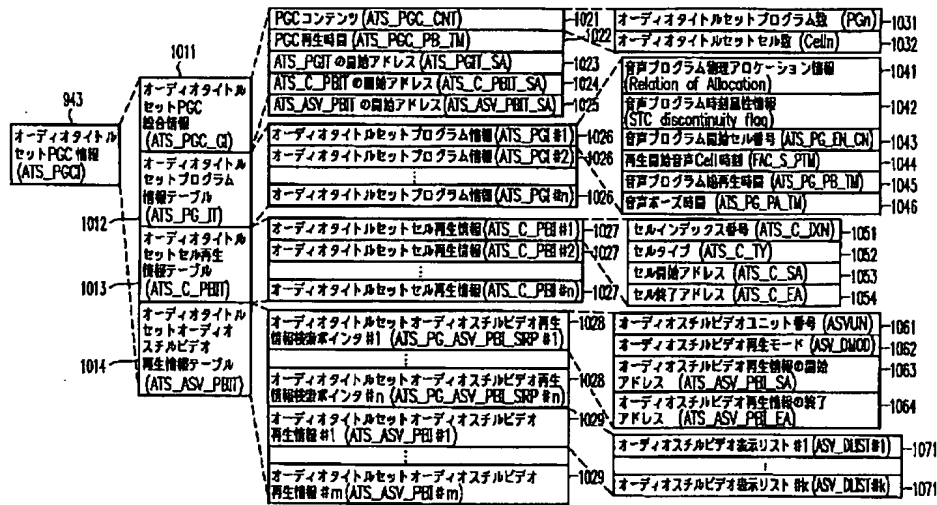 943
オーディオタイトル
セットPGC情報
(ATS_PGCI)
1011
オーディオタイトル
セットPGC
総合情報
(ATS_PGC_GI)
オーディオタイトル
セットプログラム
情報テーブル
(ATS_PG_IT)
1012
オーディオタイトル
セットセル再生
情報テーブル
(ATS_C_PBIT)
1013
オーディオタイトル
セットオーディオ
スチルビデオ
再生情報テーブル
(ATS_ASV_PBIT)
1014
PGCコンテンツ(ATS_PGC_CNT)
1021
PGC再生時間(ATS_PGC_PB_TM)
1022
ATS_PGITの開始アドレス(ATS_PGIT_SA)
1023
ATS_C_PBITの開始アドレス(ATS_C_PBIT_SA)
1024
ATS_ASV_PBITの開始アドレス(ATS_ASV_PBIT_SA)
1025
オーディオタイトルセットプログラム情報(ATS_PGI#1)
1026
オーディオタイトルセットプログラム情報(ATS_PGI#2)
1026
オーディオタイトルセットプログラム情報(ATS_PGI#n)
1026
オーディオタイトルセットセル再生情報(ATS_C_PBI#1)
1027
オーディオタイトルセットセル再生情報(ATS_C_PBI#2)
1027
オーディオタイトルセットセル再生情報(ATS_C_PBI#n)
1027
オーディオタイトルセットオーディオスチルビデオ再生
情報検索ポインタ#1(ATS_PG_ASV_PBI_SRP#1)
1028
オーディオタイトルセットオーディオスチルビデオ再生
情報検索ポインタ#n(ATS_PG_ASV_PBI_SRP#n)
1028
オーディオタイトルセットオーディオスチルビデオ
再生情報#1(ATS_ASV_PBI#1)
1029
オーディオタイトルセットオーディオスチルビデオ
再生情報#m(ATS_ASV_PBI#m)
1029
オーディオタイトルセットプログラム数 (PGn)
1031
オーディオタイトルセットセル数 (Celln)
1032
音声プログラム物理アロケーション情報
(Relation of Allocation)
1041
音声プログラム時刻属性情報
(STC discontinuity flag)
1042
音声プログラム開始セル番号(ATS_PG_EN_CN)
1043
再生開始音声Cell時刻(FAC_S_PTM)
1044
音声プログラム総再生時間(ATS_PG_PB_TM)
1045
音声ポーズ時間(ATS_PG_PA_TM)
1046
セルインデックス番号(ATS_C_IXN)
1051
セルタイプ(ATS_C_TY)
1052
セル開始アドレス(ATS_C_SA)
1053
セル終了アドレス(ATS_C_EA)
1054
オーディオスチルビデオユニット番号(ASVUN)
1061
オーディオスチルビデオ再生モード(ASV_DMOD)
1062
オーディオスチルビデオ再生情報の開始
アドレス (ATS_ASV_PBI_SA)
1063
オーディオスチルビデオ再生情報の終了
アドレス (ATS_ASV_PBI_EA)
1064
オーディオスチルビデオ表示リスト#1(ASV_DLIST#1)
1071
オーディオスチルビデオ表示リスト#k(ASV_DLIST#k)
1071